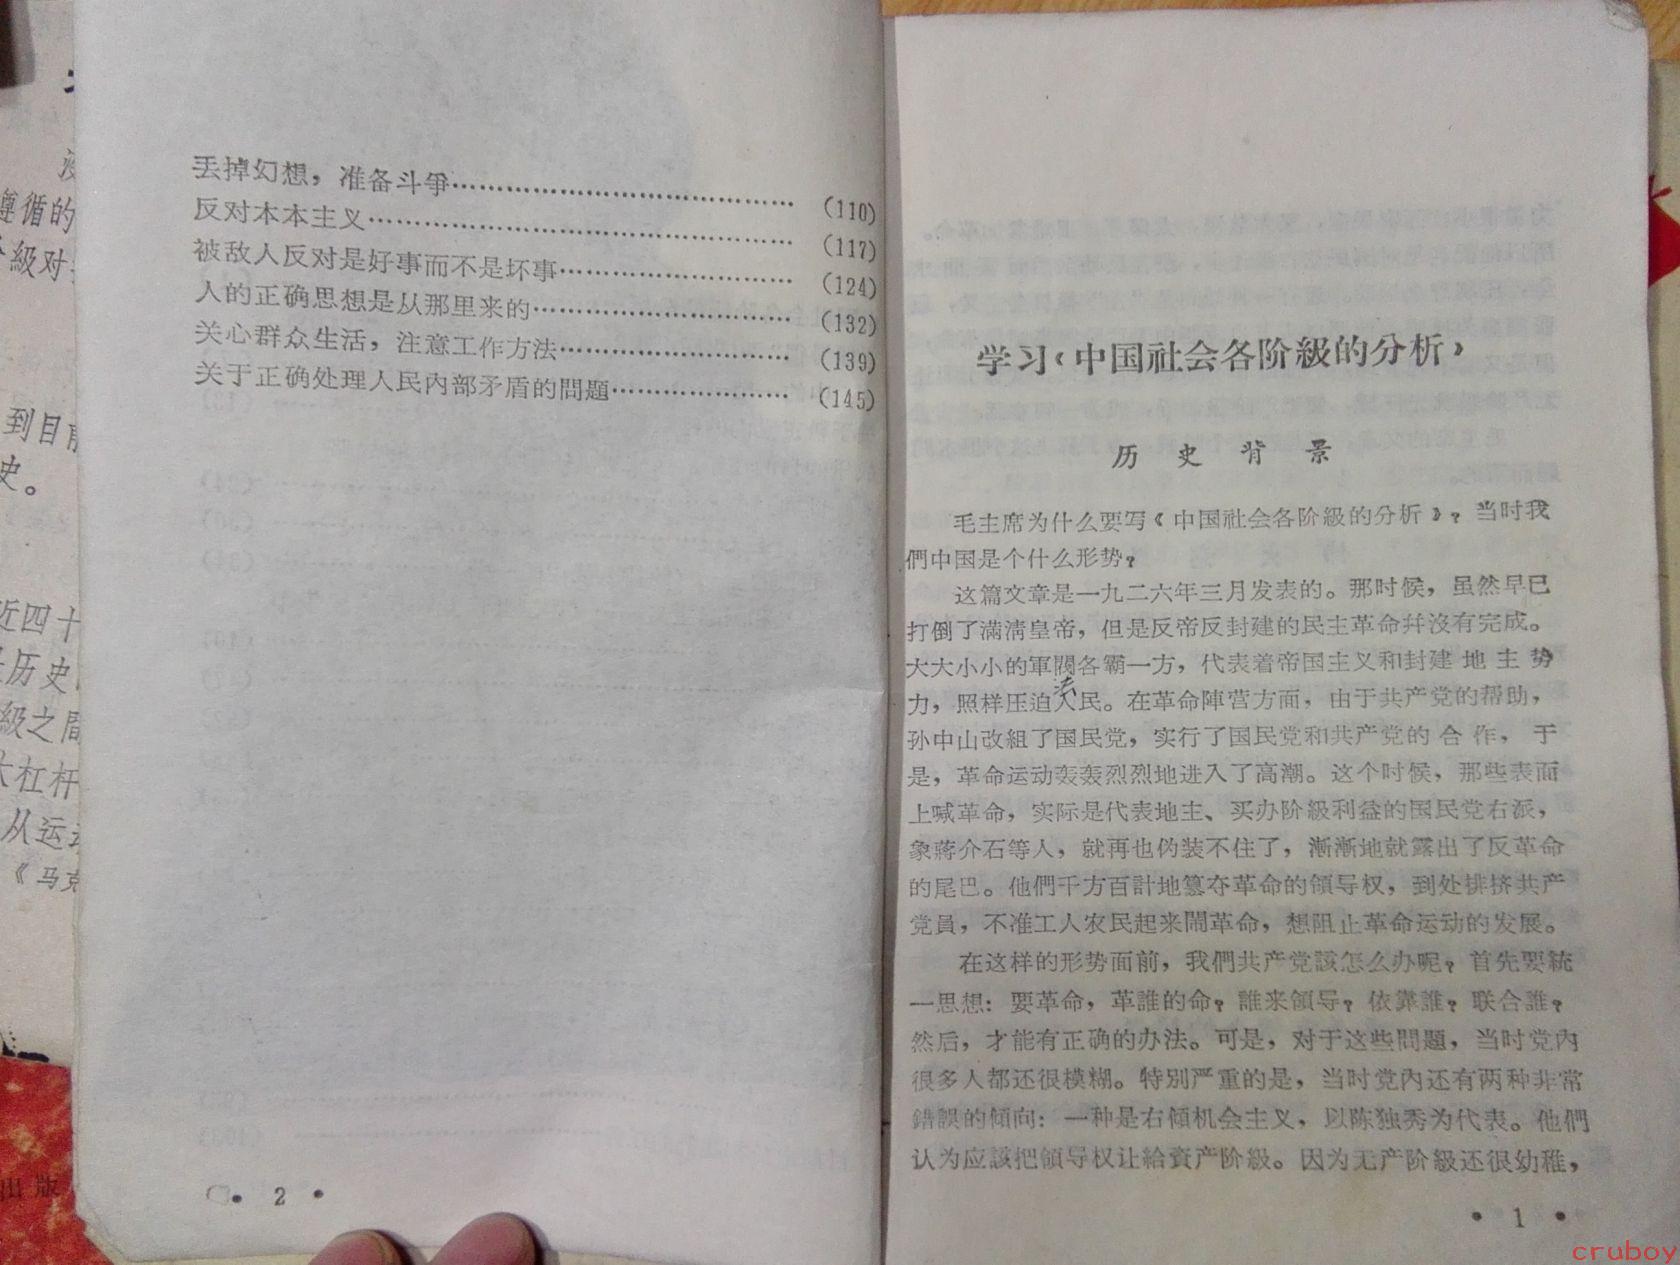 丢掉幻想，准备斗爭…………………………………(110)
反对本本主义…………………………………………(117)
被敌人反对是好事而不是坏事………………………(124)
人的正确思想是从那里来的…………………………(132)
关心群众生活，注意工作方法………………………(139)
关于正确处理人民內部矛盾的問題…………………(145)
• 2 •
学习《中国社会各阶級的分析》
历史背景
毛主席为什么要写《中国社会各阶級的分析》？当时我
們中国是个什么形势？
这篇文章是一九二六年三月发表的。那时候，虽然早已
打倒了滿淸皇帝，但是反帝反封建的民主革命幷沒有完成。
大大小小的軍閥各霸一方，代表着帝国主义和封建地主势
力，照样压迫人民。在革命陣营方面，由于共产党的帮助，
孙中山改組了国民党，实行了国民党和共产党的合作，于
是，革命运动轰轰烈烈地进入了高潮。这个时候，那些表面
上喊革命，实际是代表地主、买办阶級利益的国民党右派，
象蔣介石等人，就再也伪装不住了，漸漸地就露出了反革命
的尾巴。他們千方百計地篡夺革命的領导权，到处排挤共产
党員，不准工人农民起来鬧革命，想阻止革命运动的发展。
在这样的形势面前，我們共产党該怎么办呢？首先要統
一思想：要革命，革誰的命？誰来領导？依靠誰？联合誰？
然后，才能有正确的办法。可是，对于这些問題，当时党內
很多人都还很模糊。特别严重的是，当时党內还有两种非常
錯誤的傾向：一种是右傾机会主义，以陈独秀为代表。他們
认为应該把領导权让給資产阶級。因为无产阶級还很幼稚，
• 1 •
遵循的
級对
到目前
史。
近四十
历史
級之間
大杠杆
从运
《马克
出版
cruboy